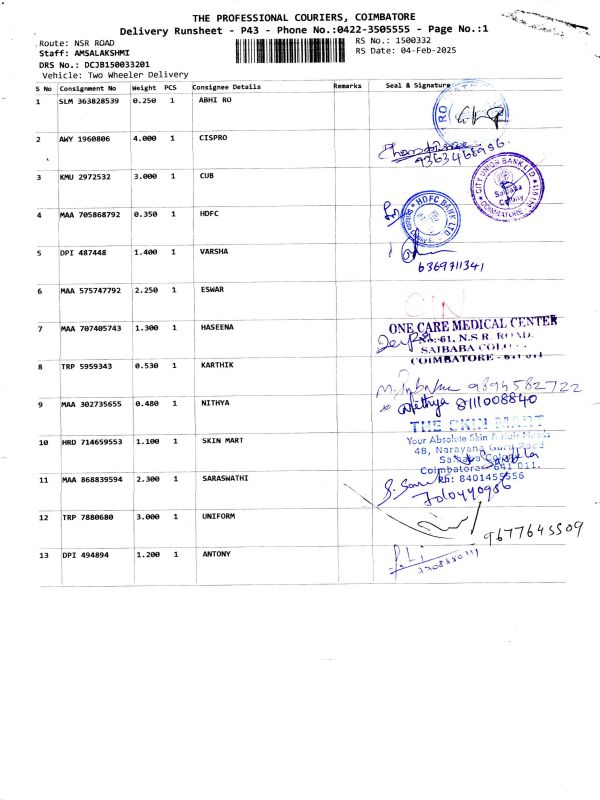 THE PROFESSIONAL COURIERS, COIMBATORE
Delivery Runsheet - P43 - Phone No.:0422-3505555 - Page No.:1
Route: NSR ROAD
RS No.: 1500332
Staff: AMSALAKSHMI
RS Date: 04-Feb-2025
DRS No.: DCJB150033201
Vehicle: Two Wheeler Delivery
S No Consignment No Weight PCS Consignee Details Remarks Seal & Signature
1 SLM 363828539 0.250 1 ABHI RO
2 AWY 1960806 4.000 1 CISPRO
9363466986.
3 KMU 2972532 3.000 1 CUB
CITY UNION BANK LTD
Saibaba
Colony
COIMBATORE
4 MAA 705868792 0.350 1 HDFC
HDFC BANK LTD
5 DPI 487448 1.400 1 VARSHA
6369711341
6 MAA 575747792 2.250 1 ESWAR
7 MAA 707405743 1.300 1 HASEENA
ONE CARE MEDICAL CENTER
No:-61, N.S.R. ROAD.
SAIBABA COL
COIMBATORE - 641 011
8 TRP 5959343 0.530 1 KARTHIK
9894582722
9 MAA 302735655 0.480 1 NITHYA
Nithya 8111008840
10 HRD 714659553 1.100 1 SKIN MART
THE SKIN MART
Your Absolute Skin & Hair Needs
48, Narayana Guru Road
Coimbatore 641 011.
Ph: 8401455556
11 MAA 868839594 2.300 1 SARASWATHI
7010440986
12 TRP 7880680 3.000 1 UNIFORM
9677645509
13 DPI 494894 1.200 1 ANTONY